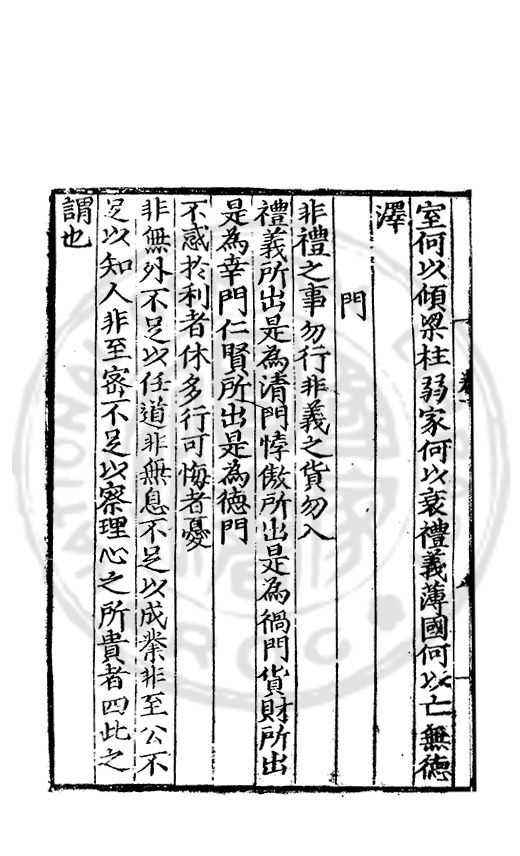 室何以傾梁柱弱家何以衰禮義薄國何以亡無德
澤
門
非禮之事勿行非義之貨勿入
禮義所出是為清門悖傲所出是為禍門貨財所出
是為幸門仁賢所出是為德門
不惑於利者休多行可悔者憂
非無外不足以任道非無息不足以成業非至公不
足以知人非至密不足以察理心之所貴者四此之
謂也